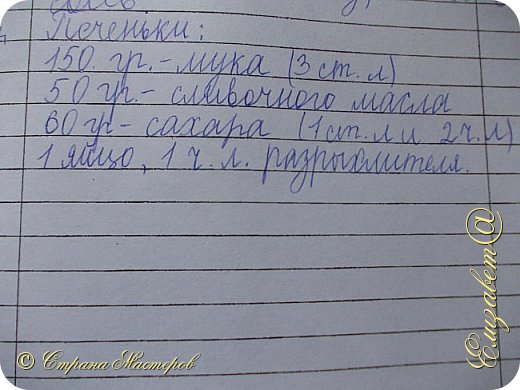 Печеньки:
150. гр. - мука (3 ст. л)
50 гр. - сливочного масла
60 гр - сахара (1 ст. л и 2 ч. л)
1 яйцо, 1 ч. л. разрыхлителя.
© Страна Мастеров
Елизавет@